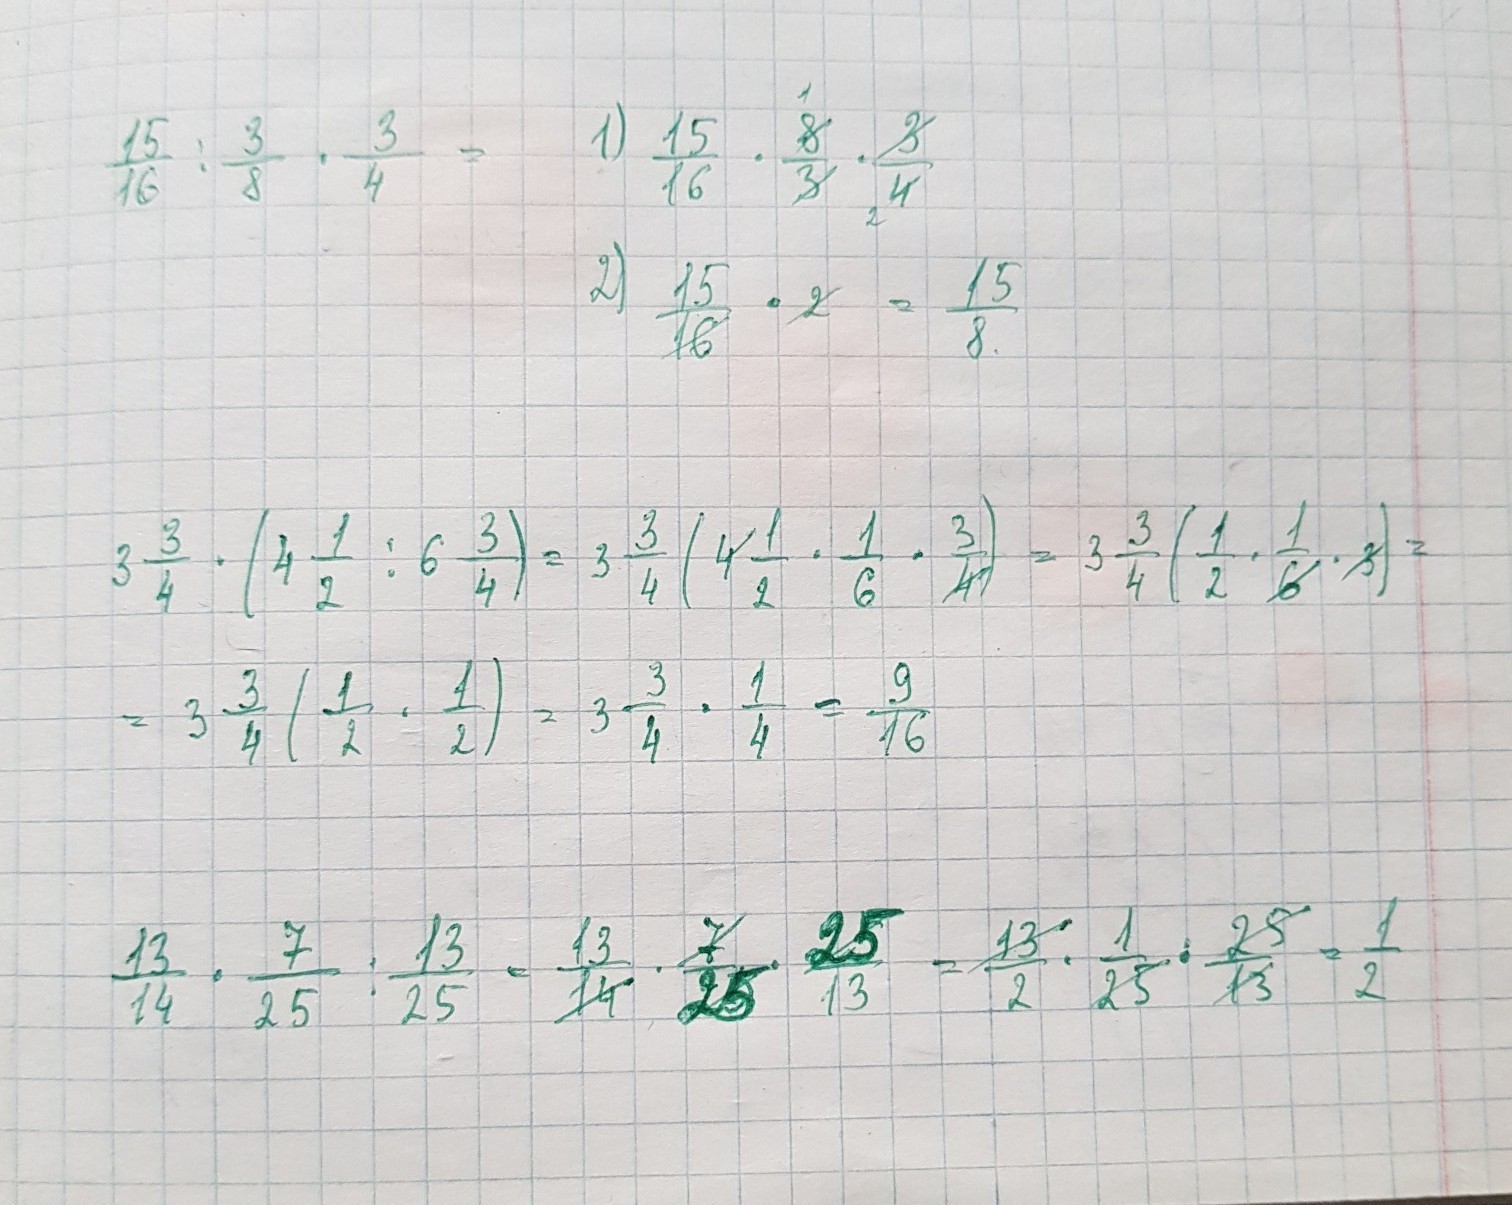 15/16 : 3/8 · 3/4 = 1) 15/16 · 8/3 · 3/4 1 2
2) 15/16 · 2 = 15/8.
3 3/4 · (4 1/2 : 6 3/4) = 3 3/4 (4 1/2 · 1/6 · 3/4) = 3 3/4 (1/2 · 1/6 · 3) =
= 3 3/4 (1/2 · 1/2) = 3 3/4 · 1/4 = 9/16
13/14 · 7/25 : 13/25 = 13/14 · 7/25 · 25/13 = 13/2 · 1/25 · 25/13 = 1/2